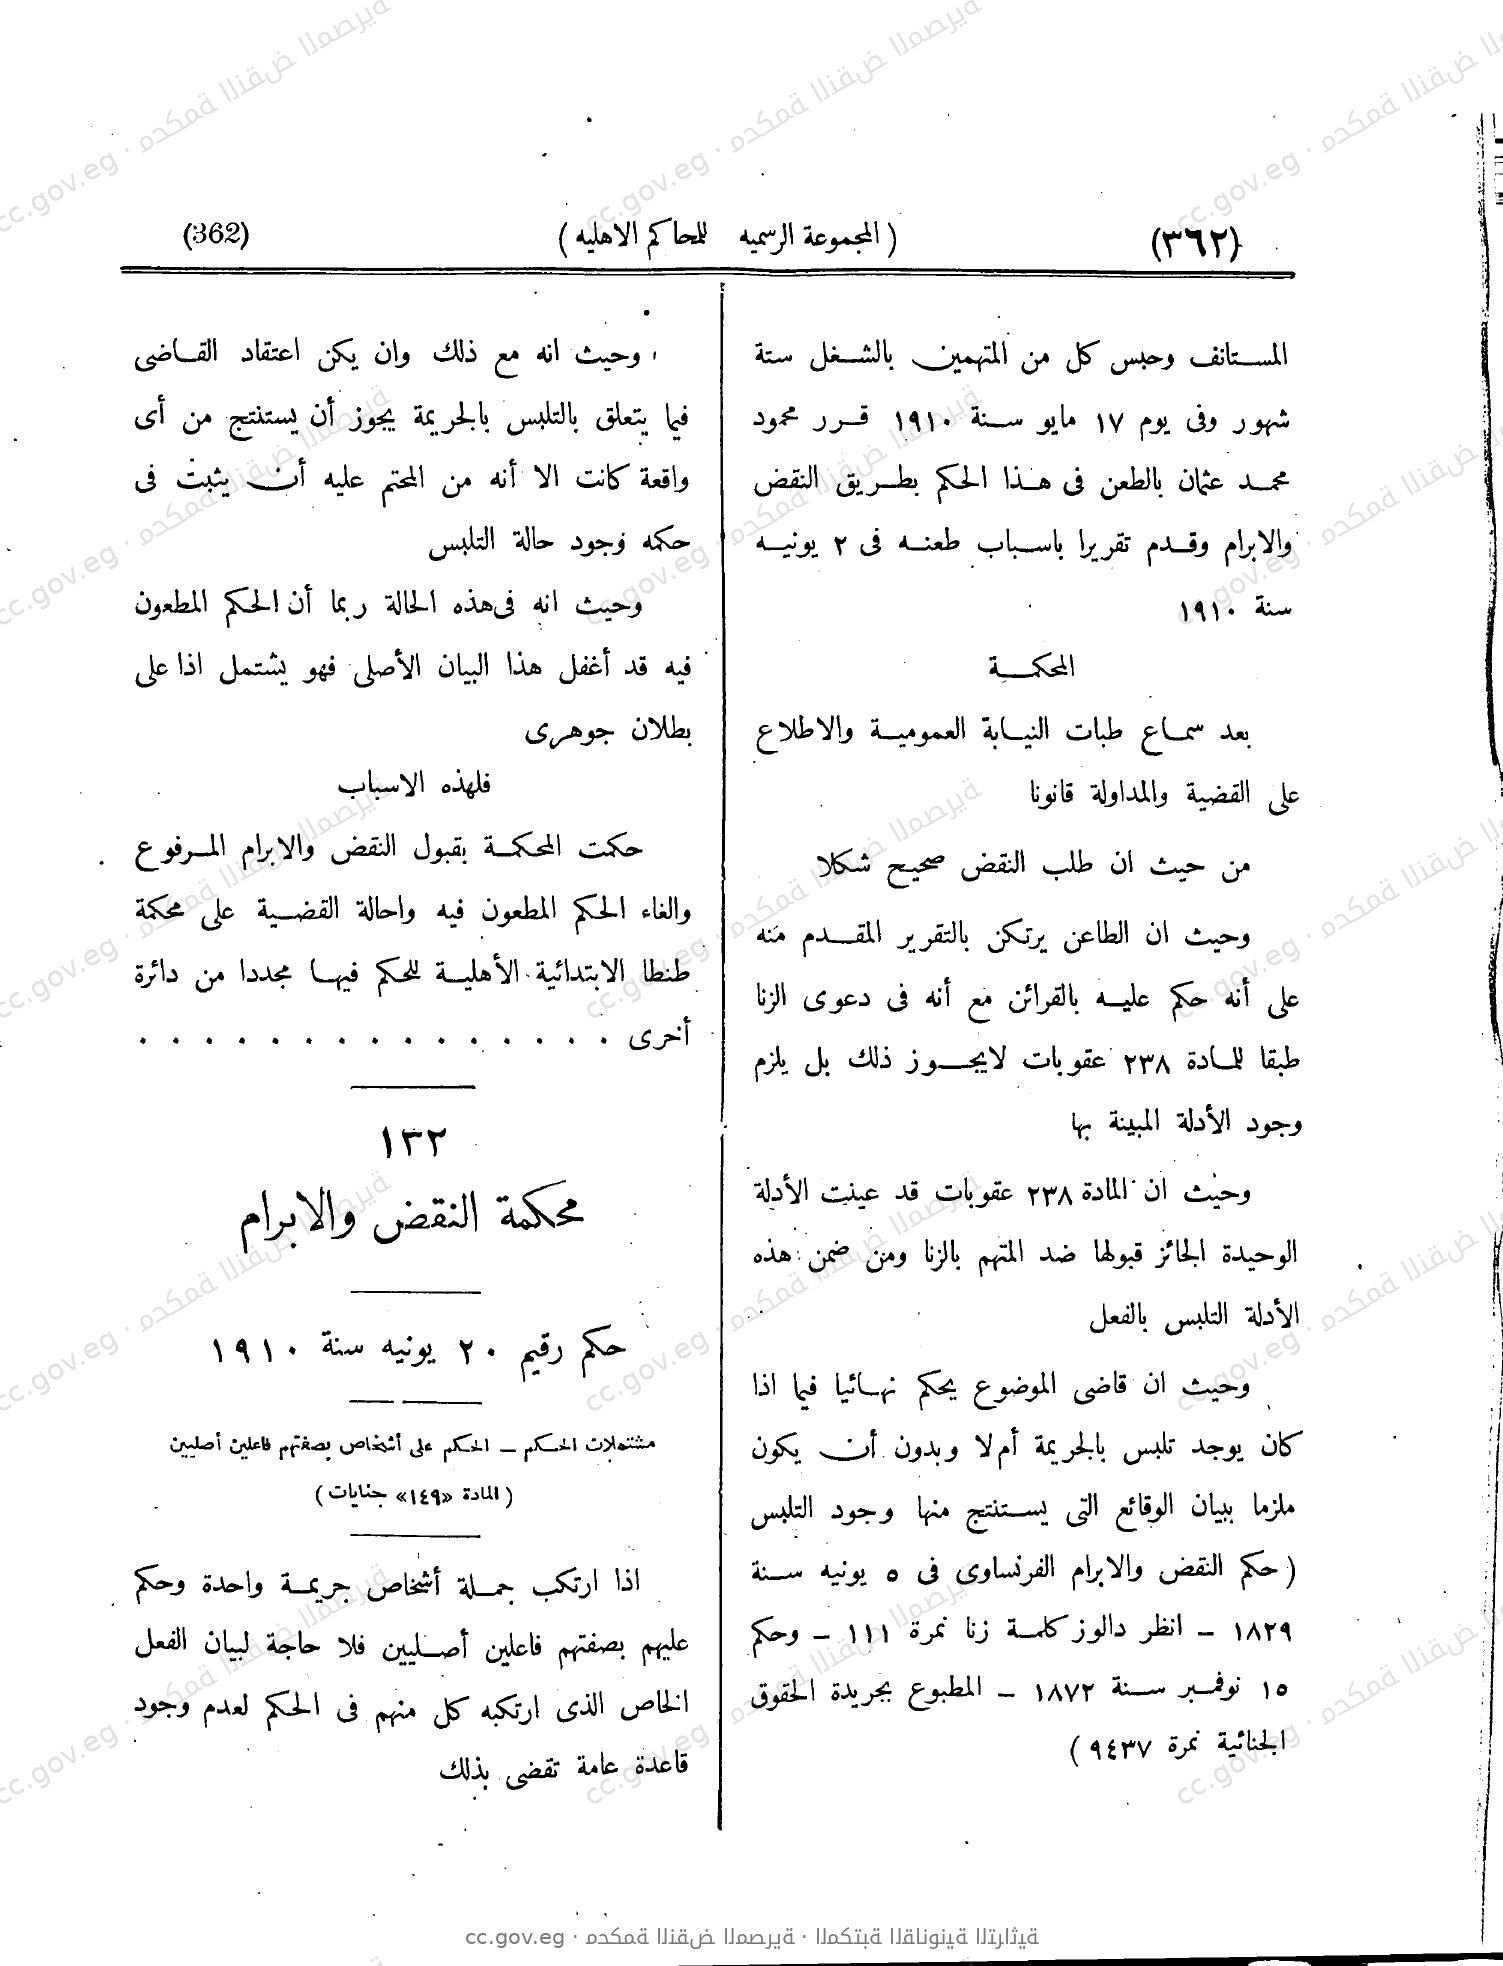 (٣٦٢)
( المجموعة الرسميه للمحاكم الاهليه )
(362)
المستانف وحبس كل من المتهمين بالشغل ستة
شهور وفى يوم ١٧ مايو سنة ١٩١٠ قرر محمود
محمد عثمان بالطعن فى هذا الحكم بطريق النقض
والابرام وقدم تقريرا باسباب طعنه فى ٢ يونيه
سنة ١٩١٠
المحكمة
بعد سماع طبات النيابة العمومية والاطلاع
على القضية والمداولة قانونا
من حيث ان طلب النقض صحيح شكلا
وحيث ان الطاعن يرتكن بالتقرير المقدم منه
على أنه حكم عليه بالقرائن مع أنه فى دعوى الزنا
طبقا للمادة ٢٣٨ عقوبات لايجوز ذلك بل يلزم
وجود الأدلة المبينة بها
وحيث ان المادة ٢٣٨ عقوبات قد عينت الأدلة
الوحيدة الجائز قبولها ضد المتهم بالزنا ومن ضمن هذه
الأدلة التلبس بالفعل
وحيث ان قاضى الموضوع يحكم نهائيا فيما اذا
كان يوجد تلبس بالجريمة أم لا وبدون أن يكون
ملزما ببيان الوقائع التى يستنتج منها وجود التلبس
( حكم النقض والابرام الفرنساوى فى ٥ يونيه سنة
١٨٢٩ ـ انظر دالوز كلمة زنا نمرة ١١١ ـ وحكم
١٥ نوفمبر سنة ١٨٧٢ ـ المطبوع بجريدة الحقوق
الجنائية نمرة ٩٤٣٧ )
وحيث انه مع ذلك وان يكن اعتقاد القاضى
فيما يتعلق بالتلبس بالجريمة يجوز أن يستنتج من أى
واقعة كانت الا أنه من المحتم عليه أن يثبت فى
حكمه وجود حالة التلبس
وحيث انه فى هذه الحالة ربما أن الحكم المطعون
فيه قد أغفل هذا البيان الأصلى فهو يشتمل اذا على
بطلان جوهرى
فلهذه الاسباب
حكمت المحكمة بقبول النقض والابرام المرفوع
والغاء الحكم المطعون فيه واحالة القضية على محكمة
طنطا الابتدائية الأهلية للحكم فيها مجددا من دائرة
أخرى . . . . . . . . . . . . . . .
١٣٢
محكمة النقض والابرام
حكم رقيم ٢٠ يونيه سنة ١٩١٠
مشتملات الحكم ـ الحكم على أشخاص بصفتهم فاعلين أصليين
( المادة «١٤٩» جنايات )
اذا ارتكب جملة أشخاص جريمة واحدة وحكم
عليهم بصفتهم فاعلين أصليين فلا حاجة لبيان الفعل
الخاص الذى ارتكبه كل منهم فى الحكم لعدم وجود
قاعدة عامة تقضى بذلك
cc.gov.eg · محكمة النقض المصرية · المكتبة القانونية التراثية